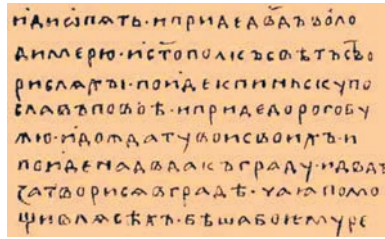 идиѡпѧть·ипридедв҃дъволо
димерю·ист҃ополкъсвѣтъство
рислѧхы·поидекпиньскупо
славъповоѣ·ипридедорогобу
жю·идождатувоисвоихъ·и
поиденадв҃дакъграду·идв҃дъ
затворисѧвградѣ·чаꙗпомо
щивлѧсѣхъ·бѣшабоемуре